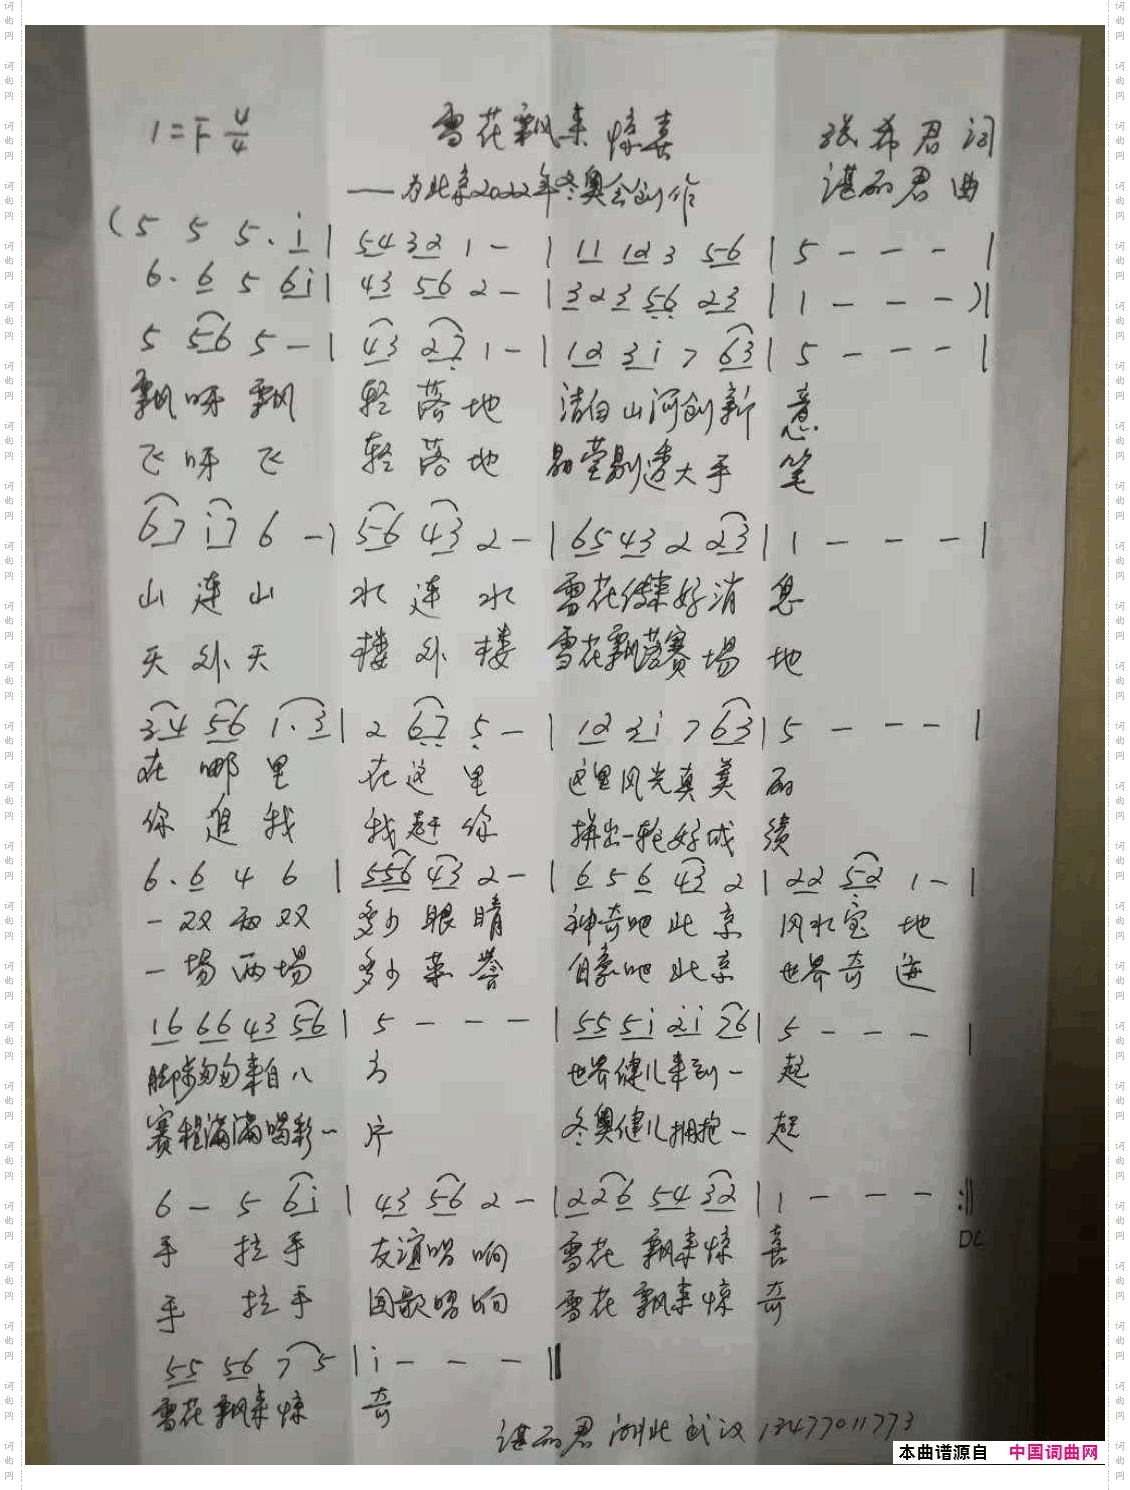 1=F 4/4
雪花飘来惊喜
张希君 词
——为北京2022年冬奥会创作
谌丽君 曲
(5 5 5. i | 54 32 1 - | 11 12 3 56 | 5 - - - |
6. 6 5 6i | 43 56 2 - | 323 56 23 | 1 - - - )|
5 56 5 - | 43 27 1 - | 12 3i 7 63 | 5 - - - |
飘呀飘 轻落地 洁白山河创新 意
飞呀飞 轻落地 晶莹剔透大手 笔
67 i7 6 - | 56 43 2 - | 65 43 2 23 | 1 - - - |
山连山 水连水 雪花传来好消 息
天外天 楼外楼 雪花飘落赛場 地
34 56 1. 3 | 2 67 5 - | 12 3i 7 63 | 5 - - - |
在哪里 在这里 这里风光真美 丽
你追我 我赶你 拼出一轮好成 绩
6. 6 4 6 | 556 43 2 - | 6 5 6 43 2 | 22 52 1 - |
一双两双 多少眼睛 神奇吧北京 风水宝地
一場两場 多少荣誉 自豪吧北京 世界奇迹
16 66 43 56 | 5 - - - | 55 5i 2i 76 | 5 - - - |
脚步匆匆来自八 方 世界健儿来到一 起
赛程满满喝彩一 片 冬奥健儿拥抱一 起
6 - 5 6i | 43 56 2 - | 226 54 32 | 1 - - - :||
DC
手 拉手 友谊唱响 雪花飘来惊 喜
手 拉手 国歌唱响 雪花飘来惊 奇
55 56 7 5 | i - - - ||
雪花飘来惊 奇
谌丽君 湖北武汉 13477011773
本曲谱源自 中国词曲网
词曲网